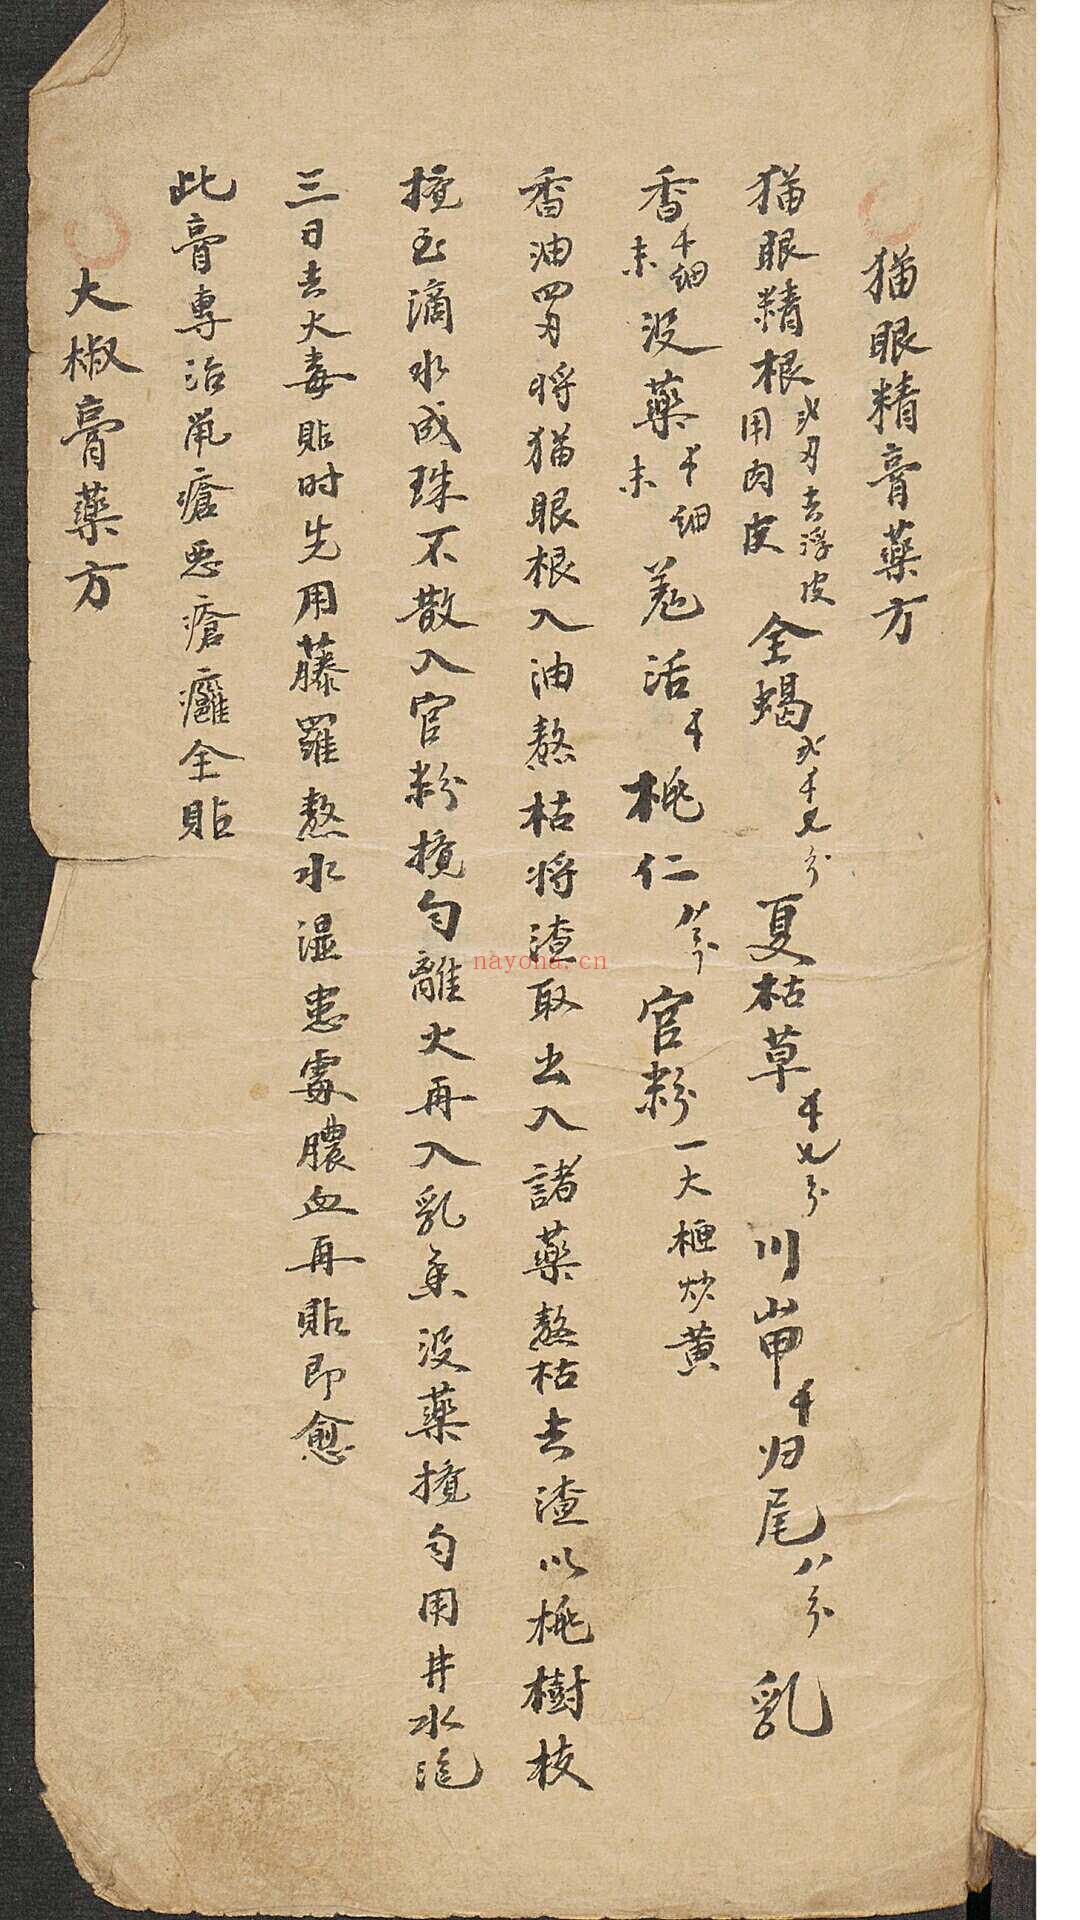 猫眼精膏藥方
猫眼精根弍刄去浮皮用肉皮 全蝎 夏枯草 川山甲 归尾八分 乳
香 細末 没藥 細末 羗活 桃仁 官粉一大棰炒黄
香油四刄将猫眼根入油熬枯将渣取出入諸藥熬枯去渣以桃樹枝
攪至滴水成珠不散入官粉攪匀離火再入乳香没藥攪匀用井水泡
三日去火毒貼时先用藤羅熬水湿患處膿血再貼即愈
此膏專治鼠瘡惡瘡癰全貼
大椒膏藥方
nayona.cn